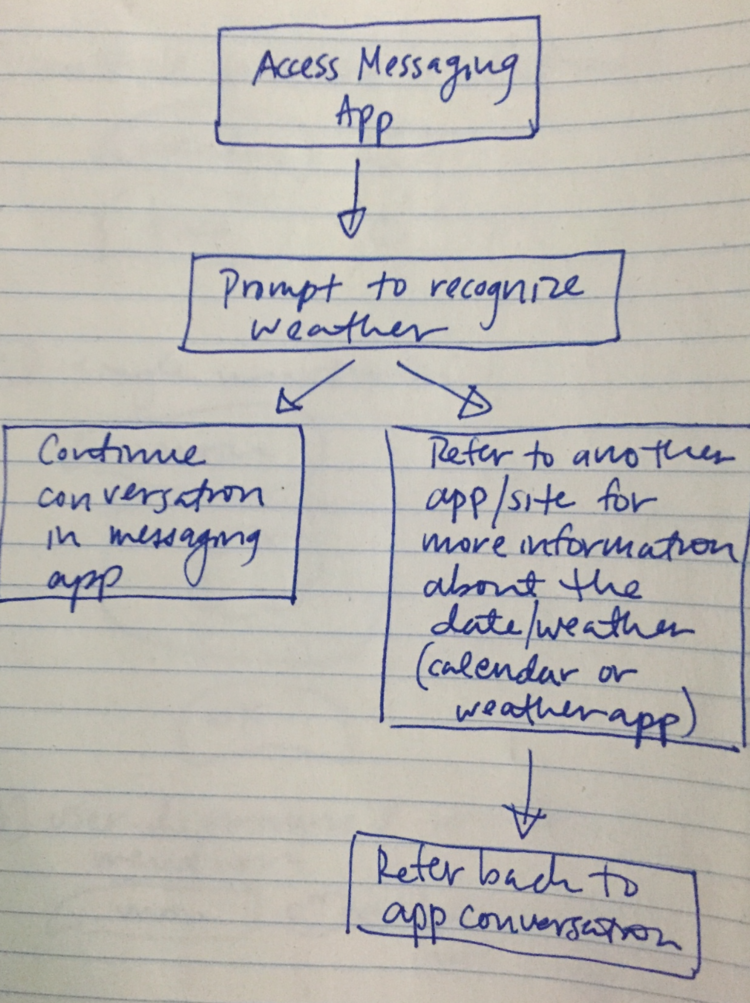 Access Messaging
App
Prompt to recognize
weather
Continue
conversation
in messaging
app
Refer to another
app/site for
more information
about the
date/weather
(calendar or
weather app)
Refer back to
app conversation